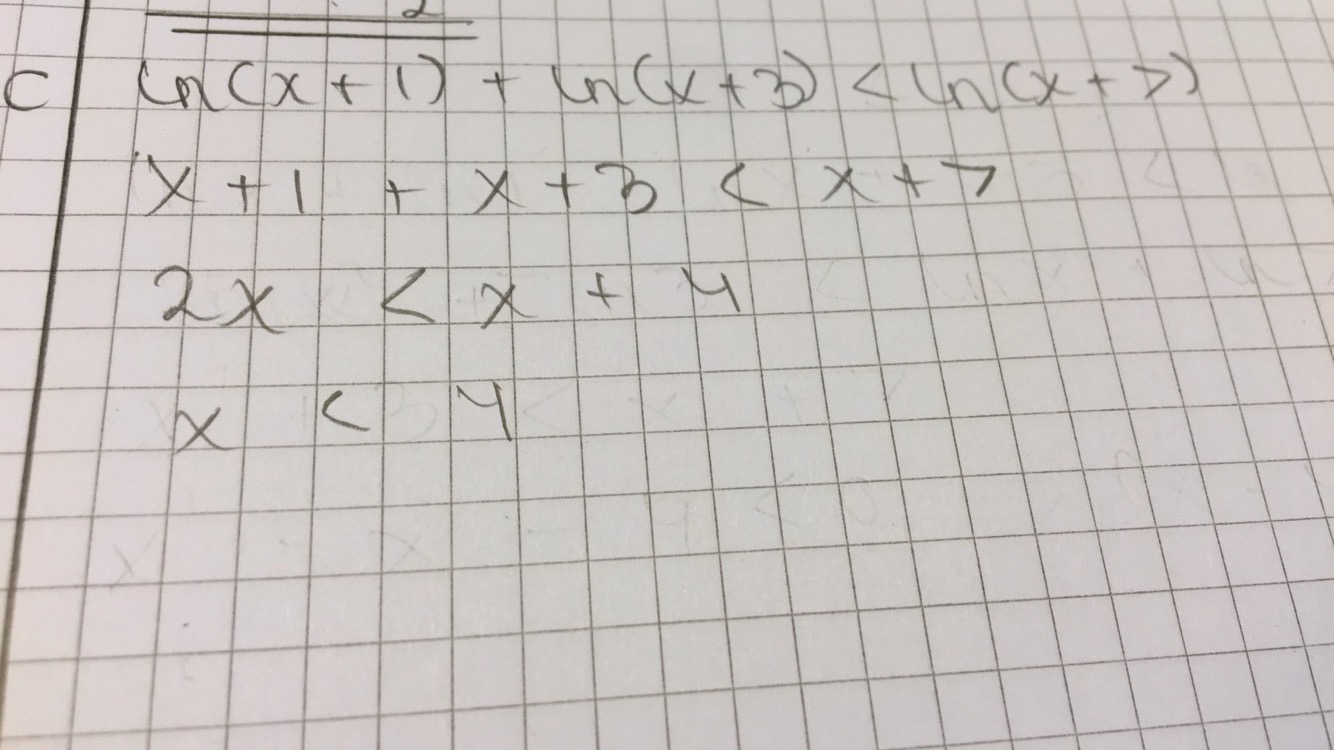 2
c ln(x+1) + ln(x+3) < ln(x+7)
x+1 + x+3 < x+7
2x < x + 4
x < 4